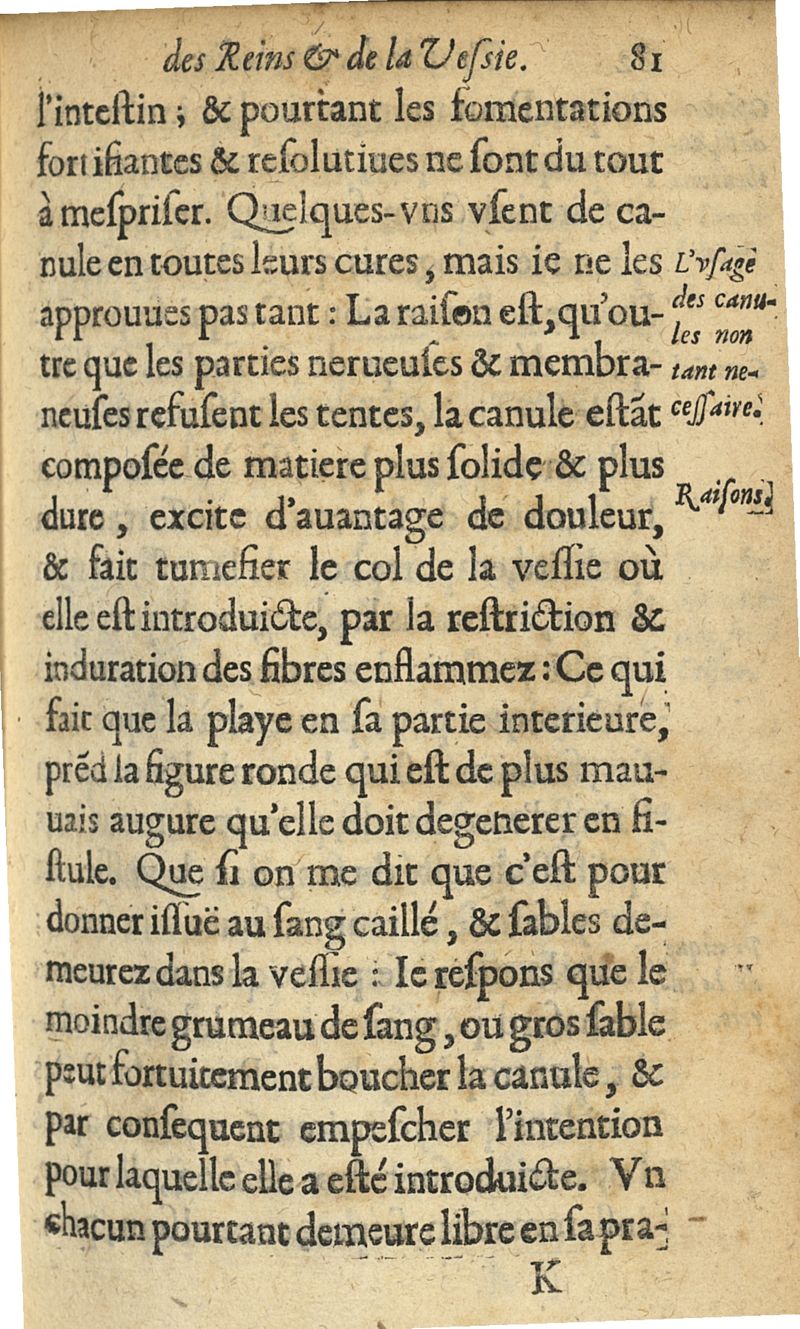 des Reins & de la Veſsie. 81
l'inteſtin ; & pourtant les fomentations
fortifiantes & reſolutiues ne ſont du tout
à meſpriſer. Quelques-vns vſent de ca-
nule en toutes leurs cures, mais ie ne les
approuues pas tant : La raiſon eſt, qu'ou-
tre que les parties nerueuſes & membra-
neuſes refuſent les tentes, la canule eſtãt
compoſée de matiere plus ſolide & plus
dure, excite d'auantage de douleur,
& fait tumefier le col de la veſſie où
elle eſt introduicte, par la reſtriction &
induration des fibres enflammez : Ce qui
fait que la playe en ſa partie interieure,
prẽd la figure ronde qui eſt de plus mau-
uais augure qu'elle doit degenerer en fi-
ſtule. Que ſi on me dit que c'eſt pour
donner iſſuë au ſang caillé, & ſables de-
meurez dans la veſſie : Ie reſpons que le
moindre grumeau de ſang, ou gros ſable
peut fortuitement boucher la canule, &
par conſequent empeſcher l'intention
pour laquelle elle a eſté introduicte. Vn
chacun pourtant demeure libre en ſa pra-
K
L'vſage
des canu-
les non
tant ne-
ceſſaire.
Raiſons.